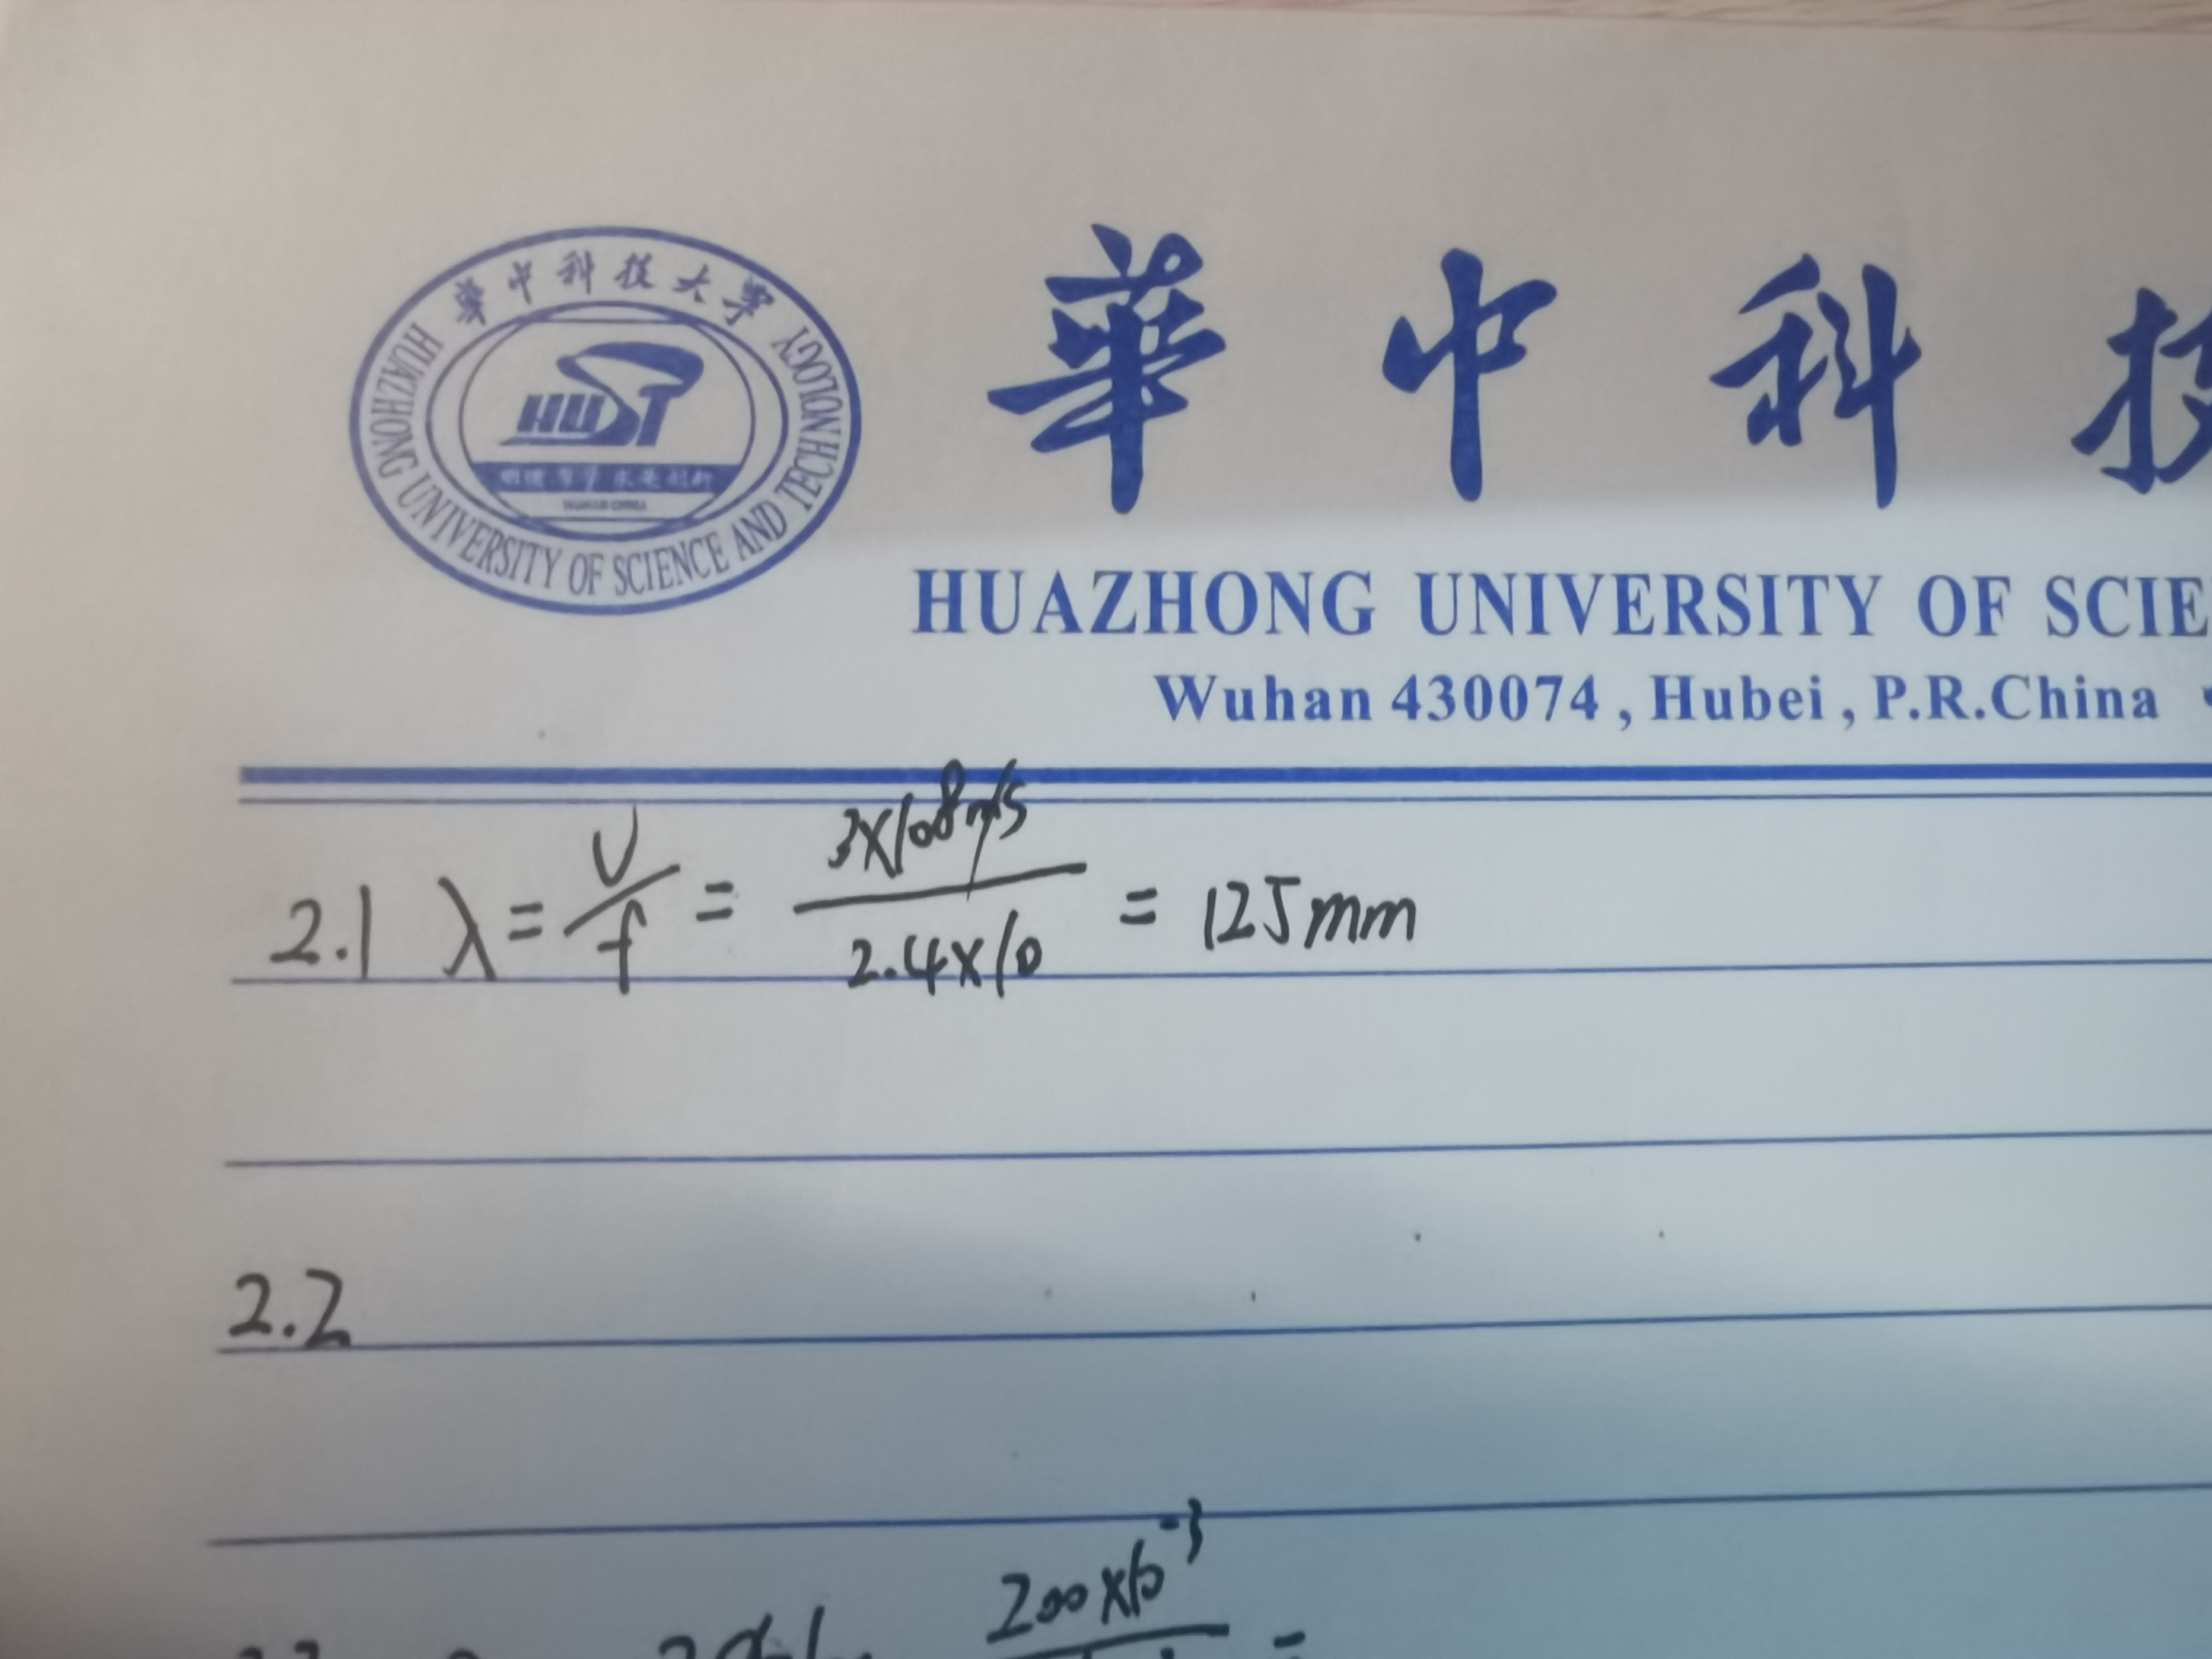 華中科技大學
HUAZHONG UNIVERSITY OF SCIENCE AND TECHNOLOGY
HUST
WUHAN CHINA
華中科技
HUAZHONG UNIVERSITY OF SCIE
Wuhan 430074 , Hubei , P.R.China
2.1 λ = V/f = 3×10⁸m/s / 2.4×10 = 125mm
2.2
200×10⁻³ =